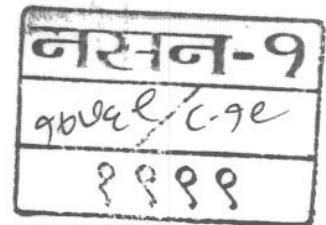 नसन-१
१७५६९/८-१९
१९९९